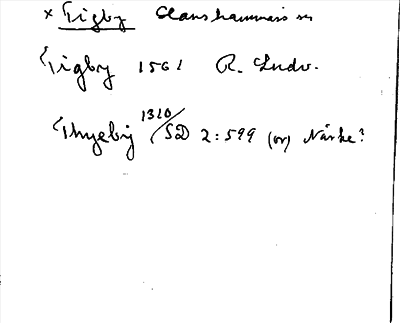 × Tigby Glanshammars sn
Tigby 1561 R. Ludv.
Thyeby 1310/SD 2:599 (or) Närke?